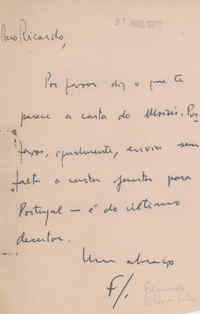 Ricardo,
Por favor diz o que te
parece a carta do Moisés. Por
favor, igualmente, envia sem
falta a carta para
Portugal — é de último
Um abraço
F/.